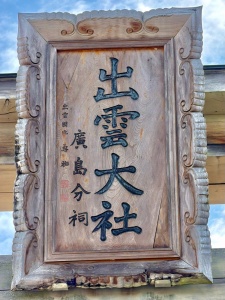 出雲大社
廣島分祠